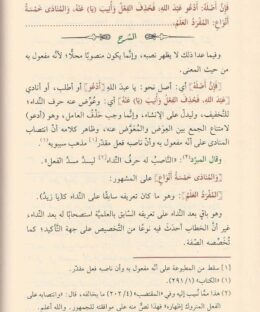 فَإِنَّ أَصْلَهُ: أَدْعُو عَبْدَ اللهِ، فَحُذِفَ الفِعْلُ وَأُنِيبَ (يَا) عَنْهُ، وَالمُنَادَى خَمْسَةُ
أَنْوَاعٍ: المُفْرَدُ العَلَمُ،
الشرح
وفيما عدا ذلك لا يظهر نصبه، وإنَّما يكون منصوبًا محلًّا؛ لأنَّه مفعول به
من حيث المعنى.
(فَإِنَّ أَصْلَهُ) أي: أصل نحو: يا عبدَ اللهِ (أَدْعُو) أو أطلب، أو أنادي
(عَبْدَ اللهِ، فَحُذِفَ الفِعْلُ وَأُنِيبَ (يَا) عَنْهُ) أي: وعُوِّض عنه حرف النِّداء؛
للتَّخفيف، وليدلَّ على الإنشاء، وإنَّما وجب حَذْفُ العامل، وهو (أدعو)
لامتناع الجمع بين العِوَض والمُعَوَّض عنه، وظاهر كلامه أنَّ انتصاب
المنادى على أنَّه مفعول به وأنَّ ناصبه فعل مقدَّر(١) مذهب سيبويه(٢).
وقال المبرّد(٣): «النَّاصب له حرف النِّداء؛ لسدِّه مسدَّ الفعل».
(وَالمُنَادَى خَمْسَةُ أَنْوَاعٍ) على المشهور:
(المُفْرَدُ العَلَمُ): وهو ما كان تعريفه سابقًا على النِّداء كـ(يا زيدُ).
وهو باقٍ بعد النِّداء على تعريفه السابق بالعلميَّة استصحابًا له بعد النِّداء،
غير أنَّ الخطاب أحدث فيه نوعًا من التَّخصيص على جهة التَّأكيد؛ كما
تُخصِّصه الصِّفة.
(١) سقط من المطبوعة على أنَّه مفعول به وأن ناصبه فعل مقدَّر.
(٢) «الكتاب» (١/ ٢٩١).
(٣) هذا ممَّا نُسِب إليه وفي «المقتضب» (٤/ ٢٠٢) ما يخالفه، قال: «وانتصابه على
الفعل المتروك إظهاره» فهذا نصٌّ منه على موافقته للجمهور. والله أعلم.